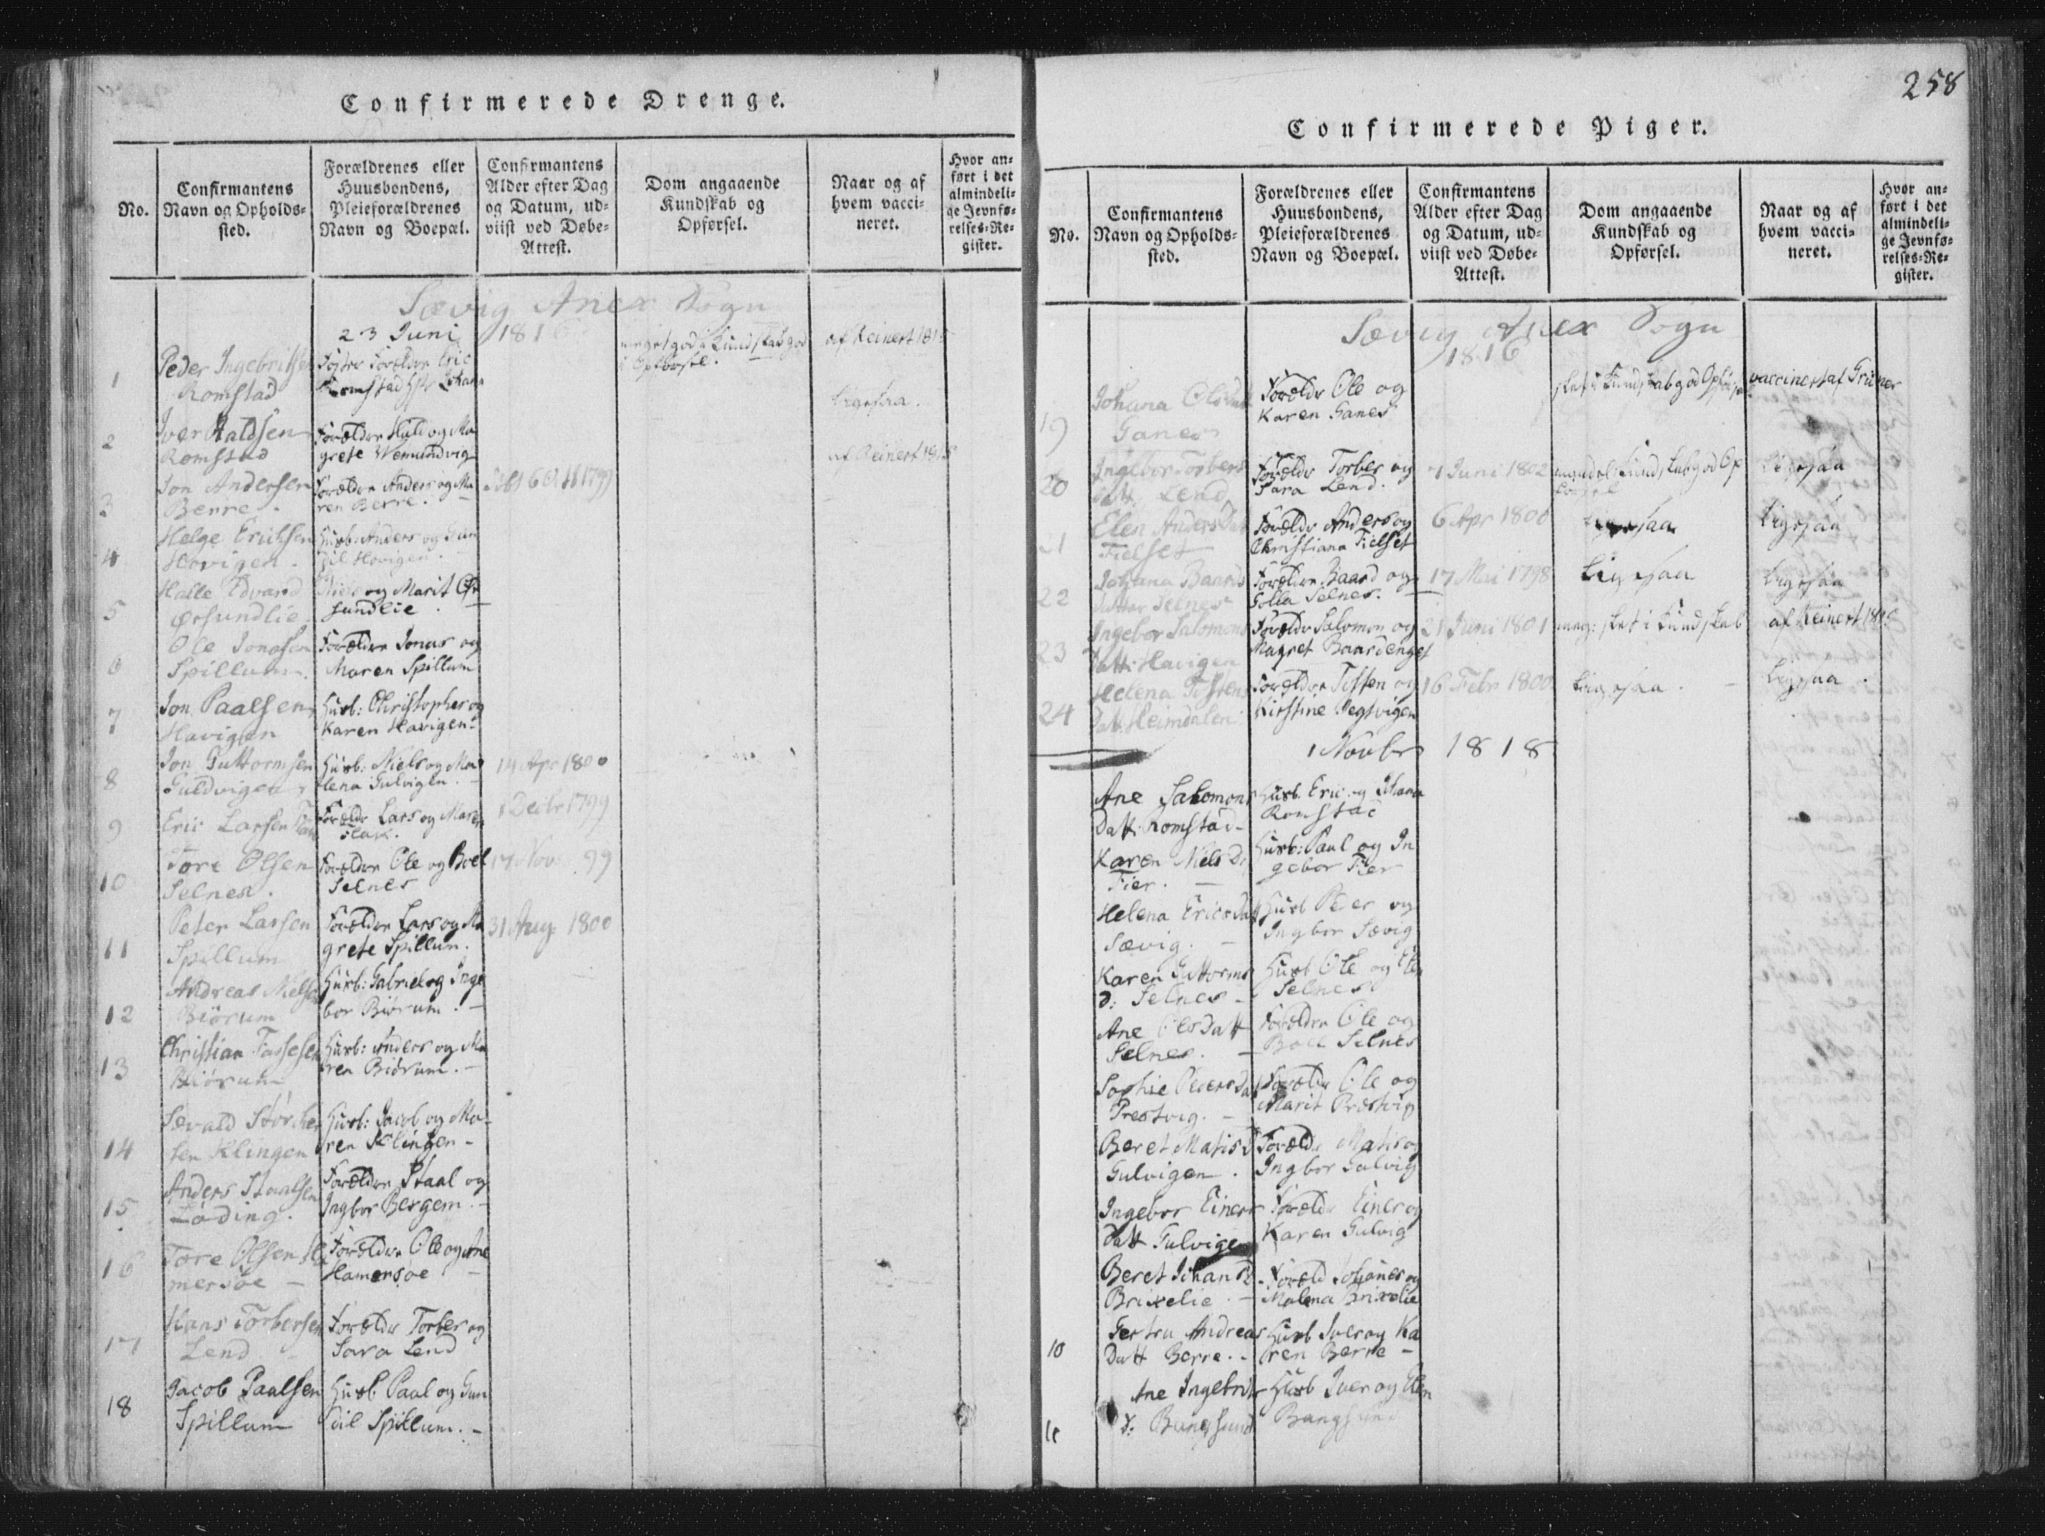 Confirmerede Drenge.
No.
Confirmantens
Navn og Opholds-
sted.
Forældrenes eller
Huusbondens,
Pleieforældrenes
Navn og Boepæl.
Confirmantens
Alder efter Dag
og Datum, ud-
viist ved Døbe-
Attest.
Dom angaaende
Kundskab og
Opførsel.
Naar og af
hvem vacci-
neret.
Hvor an-
ført i det
almindeli-
ge Jevnfø-
relses-Re-
gister.
Sævig Anex Sogn
23 Juni 1816
1
Peder Ingebritsen
Romstad
Foster Forældre Eric
Romstad
meget god i Kundskab god
i Opførsel.
af Reinert 1815
2
Iver Haldsen
Romstad
Forældre Hald og Ma
grete Wemundvig
ligesaa.
3
Jon Andersen
Berre.
Forældre Anders og Ma
ren Berre.
6 Oct 1799
af Reinert 1815
4
Helge Erichsen
Hovigen.
Husb: Anders og Gun
dil Hovigen.
5
Halle Edvard
Ørsundlie.
Niels og Marit Ør
sundlie.
6
Ole Jonasen
Spillum.
Forældre Jonas og
Maren Spillum
7
Jon Paalsen
Havigen
Husb: Christopher og
Karen Havigen.
8
Jon Guttormsen
Guldvigen
Husb: Niels og Ma
lena Gulvigen.
14 Apr 1800
9
Eric Larsen
Forældre Lars og Maren
1 Decbr 1799
10
Tore Olsen
Selnes.
Forældre Ole og Boel
Selnes
17 Nov: 99
11
Peter Larsen
Spillum
Forældre Lars og Ma
grete Spillum.
31 Aug 1800
12
Andreas Nielsen
Biørum
Husb: Gabriel og Inge
bor Biørum.
13
Christian Tassesen
Biørum
Husb: Anders og Ma
ren Biørum.
14
Sævald Størcker
sen Klingen
Husb: Jacob og Ma-
ren Klingen -
15
Anders Staalsen
Løding.
Forældre Staal og
Ingbor Bergem.
16
Tore Olsen Ha
mersøe -
Forældre Ole og Ane
Hamersøe -
17
Hans Torbersen
Lend
Forældre Torber og
Sara Lend
18
Jacob Paalsen
Spillum
Husb Paal og Gun
dil Spillum. -
258
Confirmerede Piger.
No.
Confirmantens
Navn og Opholds-
sted.
Forældrenes eller
Huusbondens,
Pleieforældrenes
Navn og Boepæl.
Confirmantens
Alder efter Dag
og Datum, ud-
viist ved Døbe-
Attest.
Dom angaaende
Kundskab og
Opførsel.
Naar og af
hvem vacci-
neret.
Hvor an-
ført i det
almindeli-
ge Jevnfø-
relses-Re-
gister.
Sævig Anex Sogn
1816
19
Johana Olsdatt
Ganes
Forældre Ole og
Karen Ganes
slet i Kundskab god Opførsel
vaccinert af Grüner
20
Ingebor Torbers
Datt. Lend
Forældre Torber og
Sara Lend.
7 Juni 1802
maadel: Kundskab god Op
førsel
ligesaa
21
Elen Anders Dat
Fielset
Forældre Anders og
Christiana Fielset
6 Apr 1800
ligesaa
ligesaa
22
Johana Baards
datter Selnes
Forældre Baard og
Golla Selnes.
17 Mai 1798
ligesaa
ligesaa
23
Ingebor Salomons
Datt: Havigen
Forældre Salomon og
Magret Baardenget
21 Juni 1801
meg: slet i Kundskab
af Reinert 1815
24
Helena Tistens
Dat. Heimdalen
Forældre Tisten og
Kirstine Jegtvigen
16 Febr 1800
ligesaa.
ligesaa.
1 Novbr 1818
Ane Salomons
Datt: Romstad -
Husb. Eric og Johana
Romstad
Karen Niels D:
Fier.
Husb: Paul og In
gebor Fier
Helena Ericsdat
Sævig.
Husb Peder og
Ingbor Sævig
Karen Guttorms
D: Selnes -
Husb Ole og Elen
Selnes
Ane Olsdatt
Selnes.
Forældre Ole og
Boel Selnes
Sophie Peders Dat
Prestvig.
Forældre Ole og
Marit Præstvig
Beret Matis D
Gulvigen.
Forældr Matis og
Ingbor Gulvig
Ingebor Einers
Datt Gulvigen
Forældr Einer og
Karen Gulvig
Beret Johans D
Brixelie.
Foræld Johanes og
Malena Brixelie
10
Gertru Andreas
Datt Berre. -
Husb Iver og Ka
ren Berre -
Ane Ingebrits
D: Bangsund
Husb Iver og Elen
Bangsund